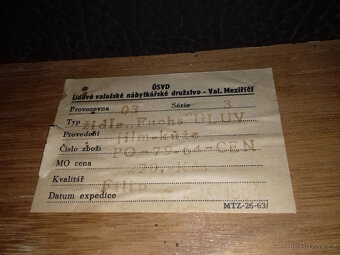 ÚSVD
Lidové valašské nábytkářské družstvo - Val. Meziříčí
Provozovna 03 Série 3
Typ židle "Fuchs" ULUV
Provedení jilm-kůže
Číslo zboží PO-79-64-CEN
MO cena 220,-
Kvalitář Filip
Datum expedice
MTZ-26-63/